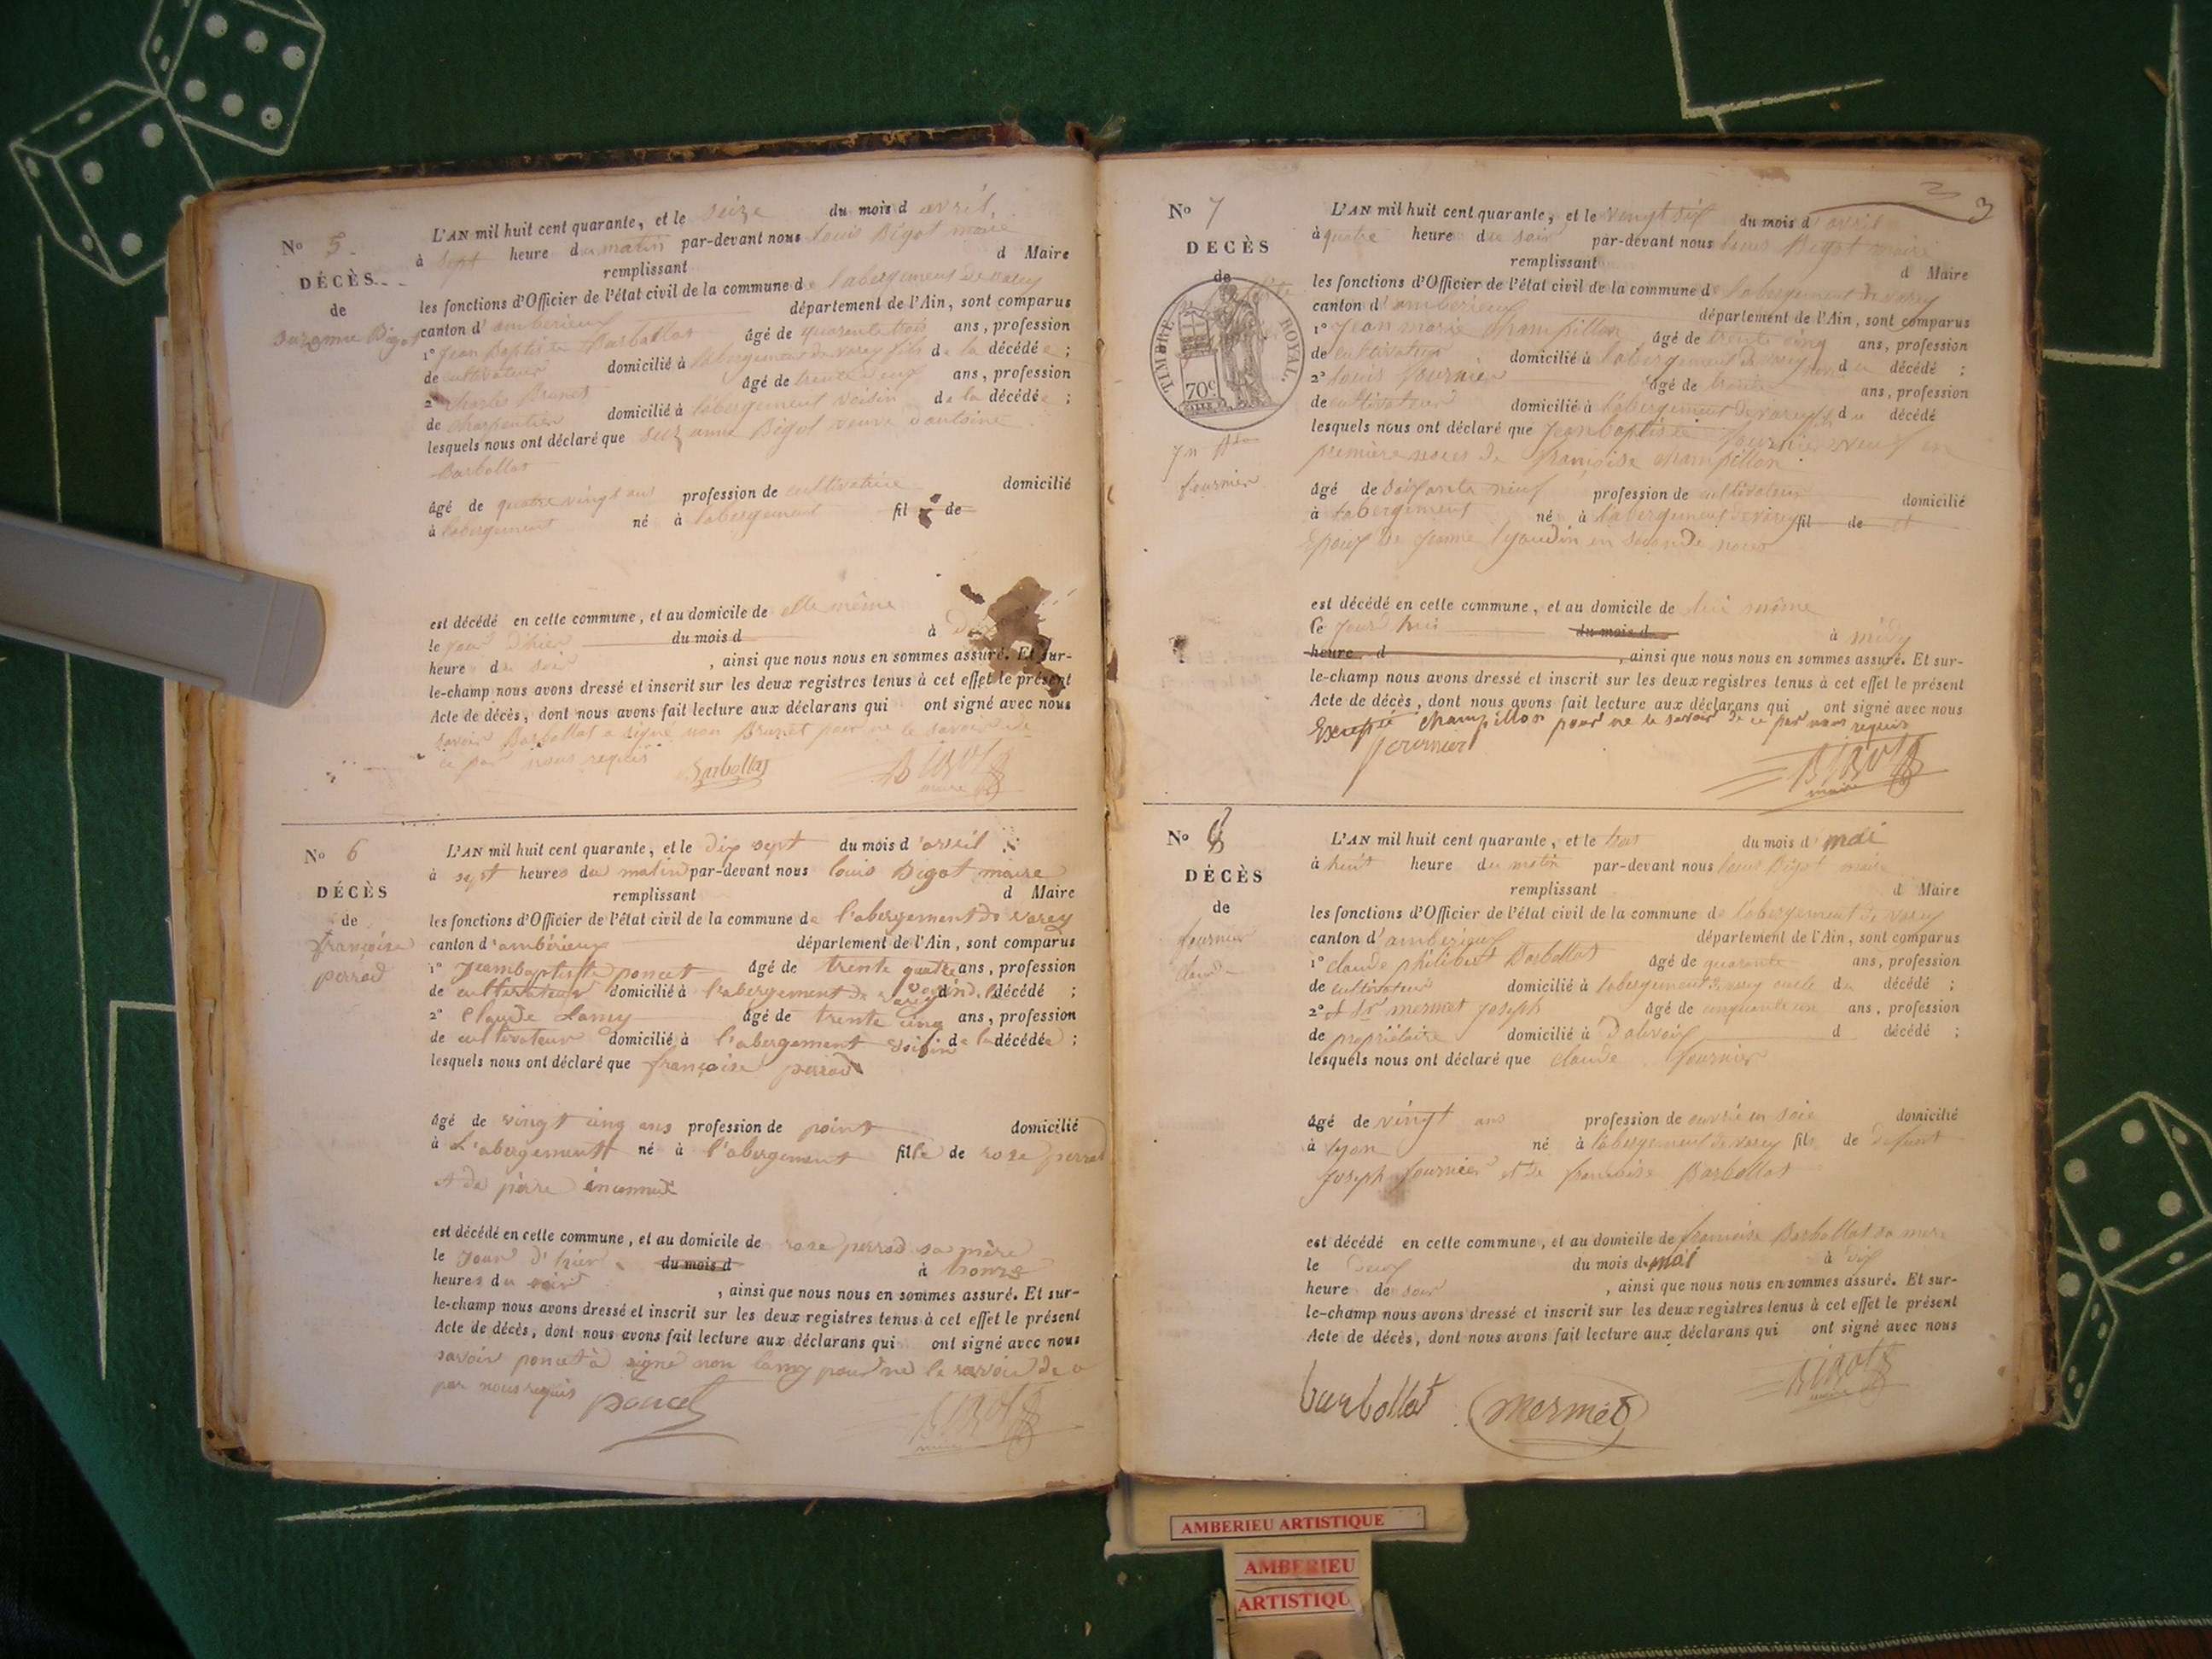 No 5
DÉCÈS
de
Suzanne Bigot
L'AN mil huit cent quarante, et le seize du mois d avril,
à sept heure du matin par-devant nous Louis Bigot maire
remplissant d Maire
les fonctions d'Officier de l'état civil de la commune de l'abergement de varey
canton d'ambérieux département de l'Ain, sont comparus
1° Jean Baptiste Barbollat âgé de quarante trois ans, profession
de cultivateur domicilié à l'abergement de varey fils de la décédée ;
2° Charles Brunet âgé de trente neuf ans, profession
de charpentier domicilié à l'abergement voisin de la décédée ;
lesquels nous ont déclaré que Suzanne Bigot veuve d'antoine
Barbollat
âgé de quatre vingt ans profession de cultivatrice domicilié
à l'abergement né à l'abergement fil de
est décédé en cette commune, et au domicile de elle même
le jour d'hier du mois d à
heure du soir , ainsi que nous nous en sommes assuré. Et sur-
le-champ nous avons dressé et inscrit sur les deux registres tenus à cet effet le présent
Acte de décès, dont nous avons fait lecture aux déclarans qui ont signé avec nous
savoir Barbollat a signé non Brunet pour ne le savoir de
ce par nous requis Barbollat BIGOT
maire
No 6
DÉCÈS
de
françoise
perrod
L'AN mil huit cent quarante, et le dix sept du mois d'avril
à sept heures du matin par-devant nous louis Bigot maire
remplissant d Maire
les fonctions d'Officier de l'état civil de la commune de l'abergement de varey
canton d'ambérieux département de l'Ain, sont comparus
1° Jeanbaptiste poncet âgé de trente quatre ans, profession
de cultivateur domicilié à l'abergement de varey voisin d. la décédé ;
2° Claude Lamy âgé de trente cinq ans, profession
de cultivateur domicilié à l'abergement voisin de la décédée ;
lesquels nous ont déclaré que françoise perrod
âgé de vingt cinq ans profession de point domicilié
à L'abergement né à l'abergement fille de rose perrod
et de père inconnu
est décédé en cette commune, et au domicile de rose perrod sa mère
le jour d'hier du mois d à honze
heures du soir , ainsi que nous nous en sommes assuré. Et sur-
le-champ nous avons dressé et inscrit sur les deux registres tenus à cet effet le présent
Acte de décès, dont nous avons fait lecture aux déclarans qui ont signé avec nous
savoir poncet à signé non lamy pour ne le savoir de ce
par nous requis poncet BIGOT
maire
3
No 7
DECÈS
de
TIMBRE ROYAL.
70c
Jn Bte
fournier
L'AN mil huit cent quarante, et le vingt six du mois d'avril
à quatre heure du soir par-devant nous louis Bigot maire
remplissant d Maire
les fonctions d'Officier de l'état civil de la commune de l'abergement de varey
canton d'ambérieux département de l'Ain, sont comparus
1° Jean marie Champillon âgé de trente cinq ans, profession
de cultivateur domicilié à l'abergement de varey du décédé ;
2° Louis fournier âgé de trente ans, profession
de cultivateur domicilié à l'abergement de varey fils du décédé
lesquels nous ont déclaré que Jeanbaptiste fournier veuf en
première noces de françoise champillon
âgé de soixante neuf profession de cultivateur domicilié
à l'abergement né à l'abergement de varey fil de et
Epoux de jeanne en seconde noces
est décédé en cette commune, et au domicile de lui même
le jourd'hui du mois d à midy
heure d , ainsi que nous nous en sommes assuré. Et sur-
le-champ nous avons dressé et inscrit sur les deux registres tenus à cet effet le présent
Acte de décès, dont nous avons fait lecture aux déclarans qui ont signé avec nous
Excepté champillon pour ne le savoir de ce par nous requis
fournier BIGOT
maire
No 8
DÉCÈS
de
fournier
claude
L'AN mil huit cent quarante, et le trois du mois d mai
à huit heure du matin par-devant nous louis Bigot maire
remplissant d Maire
les fonctions d'Officier de l'état civil de la commune de l'abergement de varey
canton d'ambérieux département de l'Ain, sont comparus
1° claude philibert Barbollat âgé de quarante ans, profession
de cultivateur domicilié à l'abergement de varey oncle du décédé ;
2° et Sr mermet joseph âgé de cinquante un ans, profession
de propriétaire domicilié à d décédé ;
lesquels nous ont déclaré que claude fournier
âgé de vingt ans profession de ouvrié en soie domicilié
à lyon né à l'abergement de varey fils de defunt
Joseph fournier et de françoise Barbollat
est décédé en cette commune, et au domicile de françoise Barbollat sa mère
le deux du mois de mai à dix
heure de soir , ainsi que nous nous en sommes assuré. Et sur-
le-champ nous avons dressé et inscrit sur les deux registres tenus à cet effet le présent
Acte de décès, dont nous avons fait lecture aux déclarans qui ont signé avec nous
barbollat mermet BIGOT
maire
AMBERIEU ARTISTIQUE
AMBERIEU
ARTISTIQU